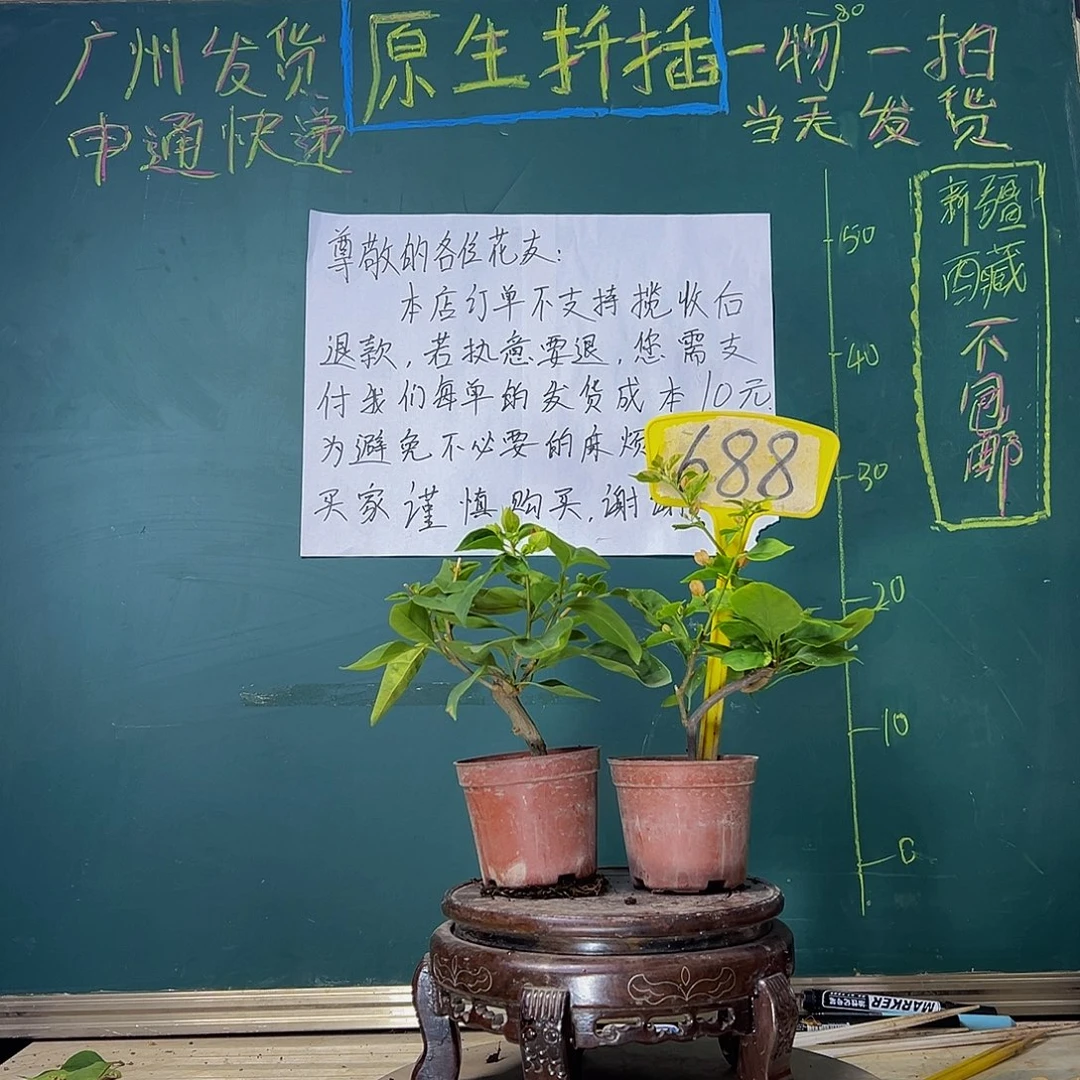 广州发货
原生扦插
一物一拍
80
申通快递
当天发货
新疆
西藏
不包邮
尊敬的各位花友:
本店订单不支持揽收后
退款,若执意要退,您需支
付我们每单的发货成本10元
为避免不必要的麻烦
买家谨慎购买,谢谢
688
50
40
30
20
10
0
MARKER